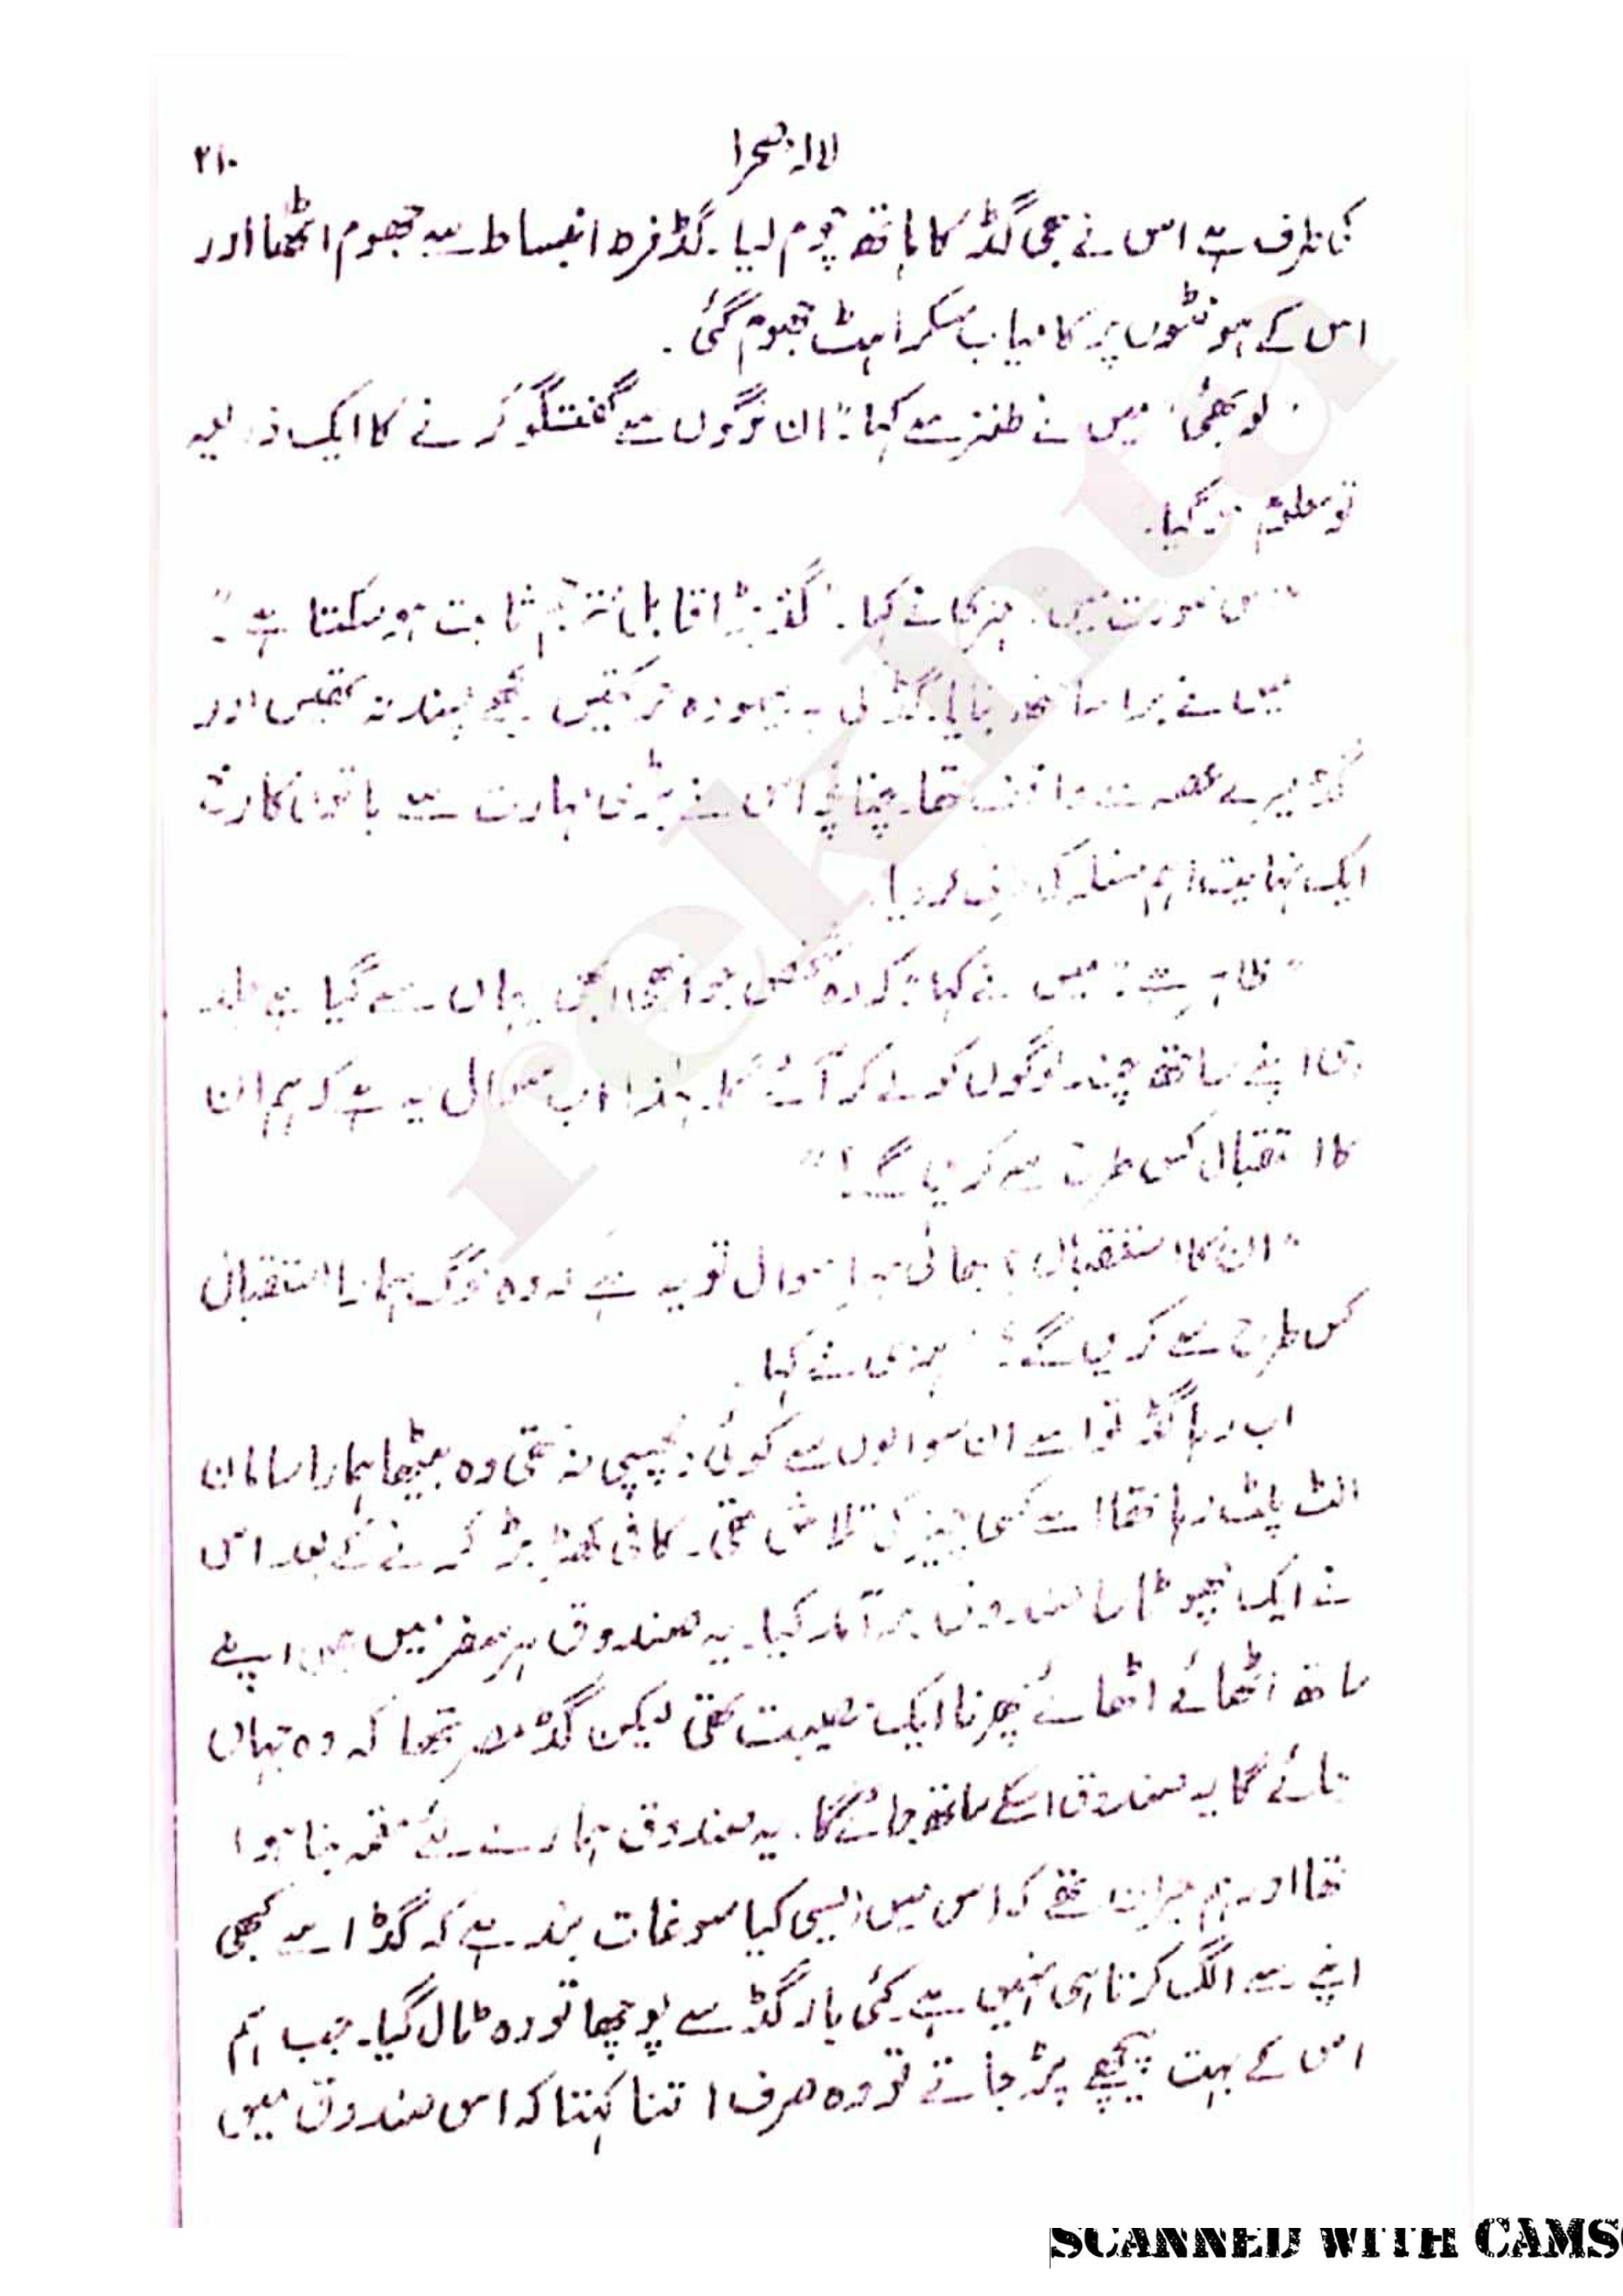 لالۂ صحرا
۲۱۰
کی طرف سے اس نے بھی گڈ کا ہاتھ چوم لیا۔ گڈ فرط انبساط سے جھوم اٹھا اور
اس کے ہونٹوں پر کامیاب مسکراہٹ جھوم گئی۔
"لو بھئی" میں نے طنز سے کہا: "ان لوگوں سے گفتگو کرنے کا ایک ذریعہ
تو معلوم ہو گیا۔
صورت میں" ہنری نے کہا۔ "گڈ بڑا قابل ثابت ہو سکتا ہے"۔
میں نے برا سا منھ بنا لیا۔ گڈ کی یہ بیہودہ حرکتیں مجھے پسند نہ تھیں اور
گڈ میرے غصہ سے واقف تھا۔ چنانچہ اس نے بڑی مہارت سے باتوں کا رخ
ایک نہایت اہم مسئلہ کی طرف کر دیا۔
"ظاہر ہے" میں نے کہا "کہ وہ شخص جو ابھی ابھی یہاں سے گیا ہے جلد
ہی اپنے ساتھ چند لوگوں کو لے کر آئے گا۔ لہٰذا اب سوال یہ ہے کہ ہم ان
کا استقبال کس طرح سے کریں گے؟"
"ان کا استقبال؟ بھائی میرے سوال تو یہ ہے کہ وہ لوگ ہمارا استقبال
کس طرح سے کریں گے؟" ہنری نے کہا۔
اب رہا گڈ تو اسے ان سوالوں سے کوئی دلچسپی نہ تھی وہ بیٹھا ہمارا سامان
الٹ پلٹ رہا تھا اسے کسی چیز کی تلاش تھی۔ کافی کھڑ بڑ کرنے کے بعد اس
نے ایک چھوٹا سا صندوق برآمد کیا۔ یہ صندوق ہر سفر میں ہمیں اپنے
ساتھ اٹھائے اٹھائے پھرنا ایک مصیبت تھی لیکن گڈ مصر تھا کہ وہ جہاں
جائے گا یہ صندوق اسکے ساتھ جائے گا۔ یہ صندوق ہمارے لئے معمہ بنا ہوا
تھا اور ہم حیران تھے کہ اس میں ایسی کیا سوغات بند ہے کہ گڈ اسے کبھی
اپنے سے الگ کرتا ہی نہیں ہے۔ کئی بار گڈ سے پوچھا تو وہ ٹال گیا۔ جب ہم
اس کے بہت پیچھے پڑ جاتے تو وہ صرف اتنا کہتا کہ اس صندوق میں
rekhta
SCANNED WITH CAMS